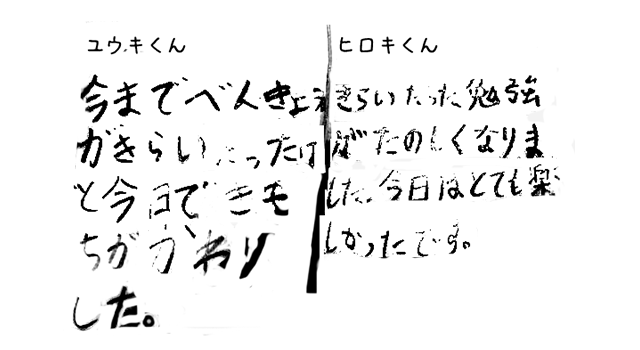 ユウキくん
今までべんきょう
がきらいだったけ
ど今日できも
ちがかわり
した。
ヒロキくん
きらいだった勉強
がたのしくなりま
した。今日はとても楽
しかったです。